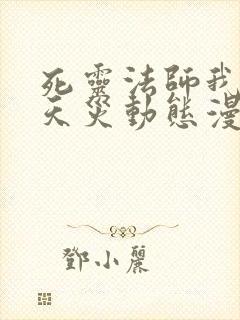 死靈法師我
天災動態漫
鄧小麗